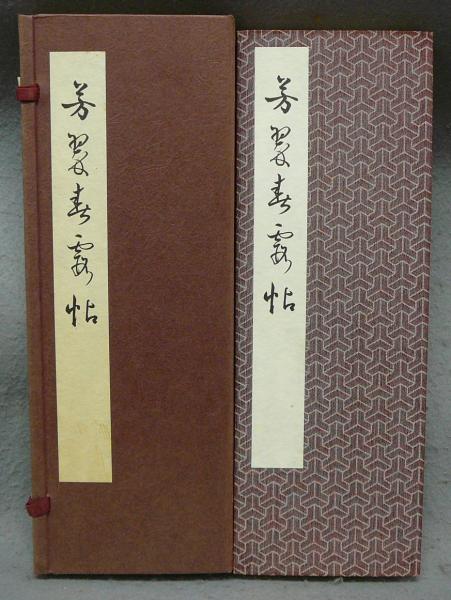 芳翠春霞帖
芳翠春霞帖